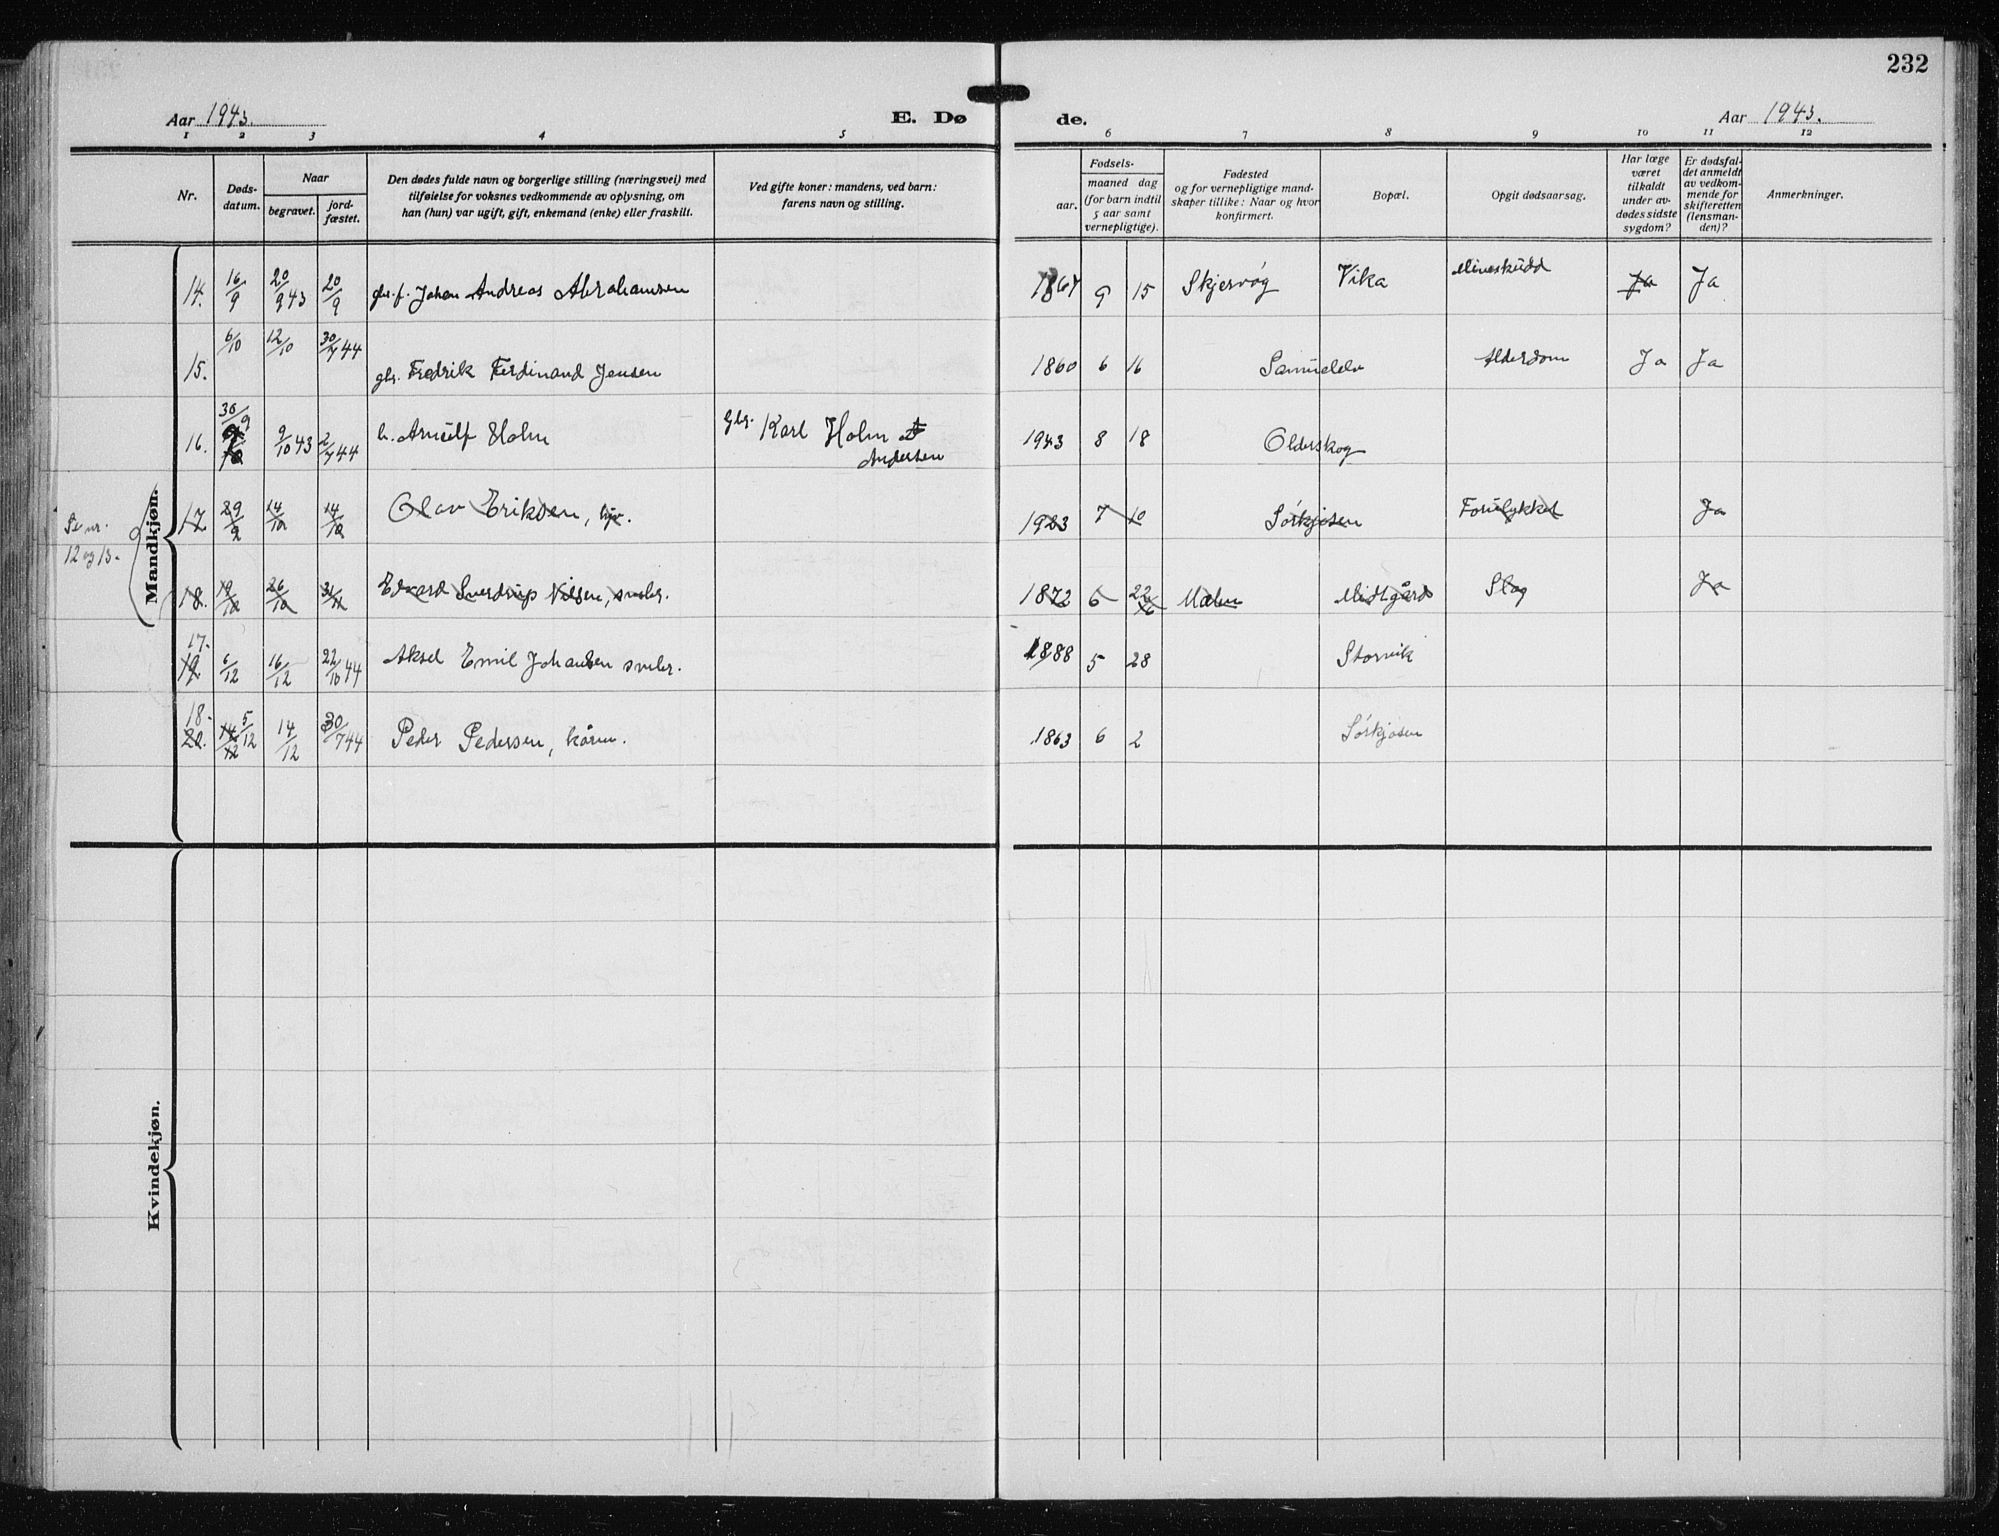 232
Aar 1943.
E. Dø de.
Aar 1943.
1 2 3 4 5 6 7 8 9 10 11 12
Nr.
Døds-
datum.
Naar
begravet.
jord-
fæstet.
Den dødes fulde navn og borgerlige stilling (næringsvei) med
tilføielse for voksnes vedkommende av oplysning, om
han (hun) var ugift, gift, enkemand (enke) eller fraskilt.
Ved gifte koner: mandens, ved barn:
farens navn og stilling.
Fødsels-
aar.
maaned dag
(for barn indtil
5 aar samt
vernepligtige).
Fødested
og for vernepligtige mand-
skaper tillike: Naar og hvor
konfirmert.
Bopæl.
Opgit dødsaarsag.
Har læge
været
tilkaldt
under av-
dødes sidste
sygdom?
Er dødsfal-
det anmeldt
av vedkom-
mende for
skifteretten
(lensman-
den)?
Anmerkninger.
Mandkjøn.
14. 16/9 20/9 43 20/9 gbr.f. Johan Andreas Abrahamsen 1867 9 15 Skjervøy Vika Mineskudd Ja Ja
15. 6/10 12/10 30/7 44 gbr. Fredrik Ferdinand Jensen 1860 6 16 Samuelelv Alderdom Ja Ja
16. 30/9 9/10 43 2/7 44 b. Arnulf Holm Gbr. Karl Holm
Andersen 1943 8 18 Olderskog
Se nr.
12 og 13.
17. 29/9 14/10 14/10 Olav Eriksen, 1923 7 10 Sørkjosen Forulykket Ja
18. 19/10 26/10 Edvard Sverdrup Nilsen, småbr. 1872 6 22 Malm Midtgård Slag Ja
17.
19. 6/12 16/12 22/10 44 Aksel Emil Johansen småbr. 1888 5 28 Storvik
18.
20. 14/12 5/12 14/12 30/7 44 Peder Pedersen, kårm. 1863 6 2 Sørkjosen
Kvindekjøn.